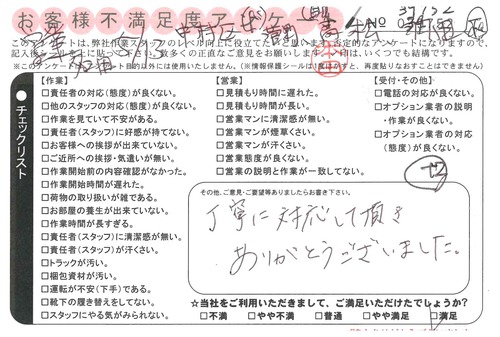 お客様不満足度アンケート
このアンケートは、弊社作業スタッフのレベル向上に役立てたいと思います。否定的なアンケートになりますので、
記入後シールを貼ってスタッフへ。数多くの正直なご意見をお願いします。いくつでも結構です。
※このアンケートは、アンケート目的以外には使用いたしません。(※情報保護シールは1度はがすと、再度貼りなおすことはできません)
チェックリスト
【作業】
□責任者の対応(態度)が良くない。
□他のスタッフの対応(態度)が良くない。
□作業を見ていて不安がある。
□責任者(スタッフ)に好感が持てない。
□お客様への挨拶が出来ていない。
□ご近所への挨拶・気遣いが無い。
□作業開始前の内容確認がなかった。
□作業開始時間が遅れた。
□荷物の取り扱いが雑である。
□お部屋の養生が出来ていない。
□作業時間が長すぎる。
□責任者(スタッフ)に清潔感が無い。
□責任者(スタッフ)が汗くさい。
□トラックが汚い。
□梱包資材が汚い。
□運転が不安(下手)である。
□靴下の履き替えをしてない。
□スタッフにやる気がみられない。
【営業】
□見積もり時間に遅れた。
□見積もり時間が長い。
□営業マンに清潔感が無い。
□営業マンが煙草くさい。
□営業マンが汗くさい。
□営業態度が良くない。
□営業の説明と作業が一致してない。
【受付・その他】
□電話の対応が良くない。
□オプション業者の説明
・作業が良くない。
□オプション業者の対応
(態度)が良くない。
その他、ご意見・ご要望等ありましたらお書き下さい。
丁寧に対応して頂き
ありがとうございました。
☆当社をご利用いただきまして、ご満足いただけたでしょうか?
□不満 □やや不満 □普通 □やや満足 □満足